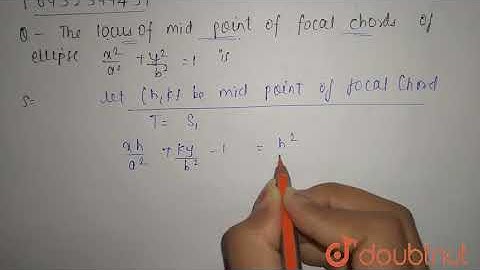 Q - The locus of mid point of focal chords of
ellipse x²/a² + y²/b² = 1 is
S= let (h, k) be mid point of focal Chord
T = S₁
xh/a² + ky/b² - 1 = h²
doubtnut